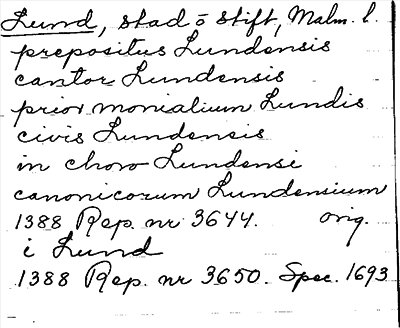 Lund, stad o stift, Malm. l.
prepositus Lundensis
cantor Lundensis
prior monialium Lundis
civis Lundensis
in choro Lundensi
canonicorum Lundensium
1388 Rep. nr 3644. orig.
i Lund
1388 Rep. nr 3650. Spec. 1693